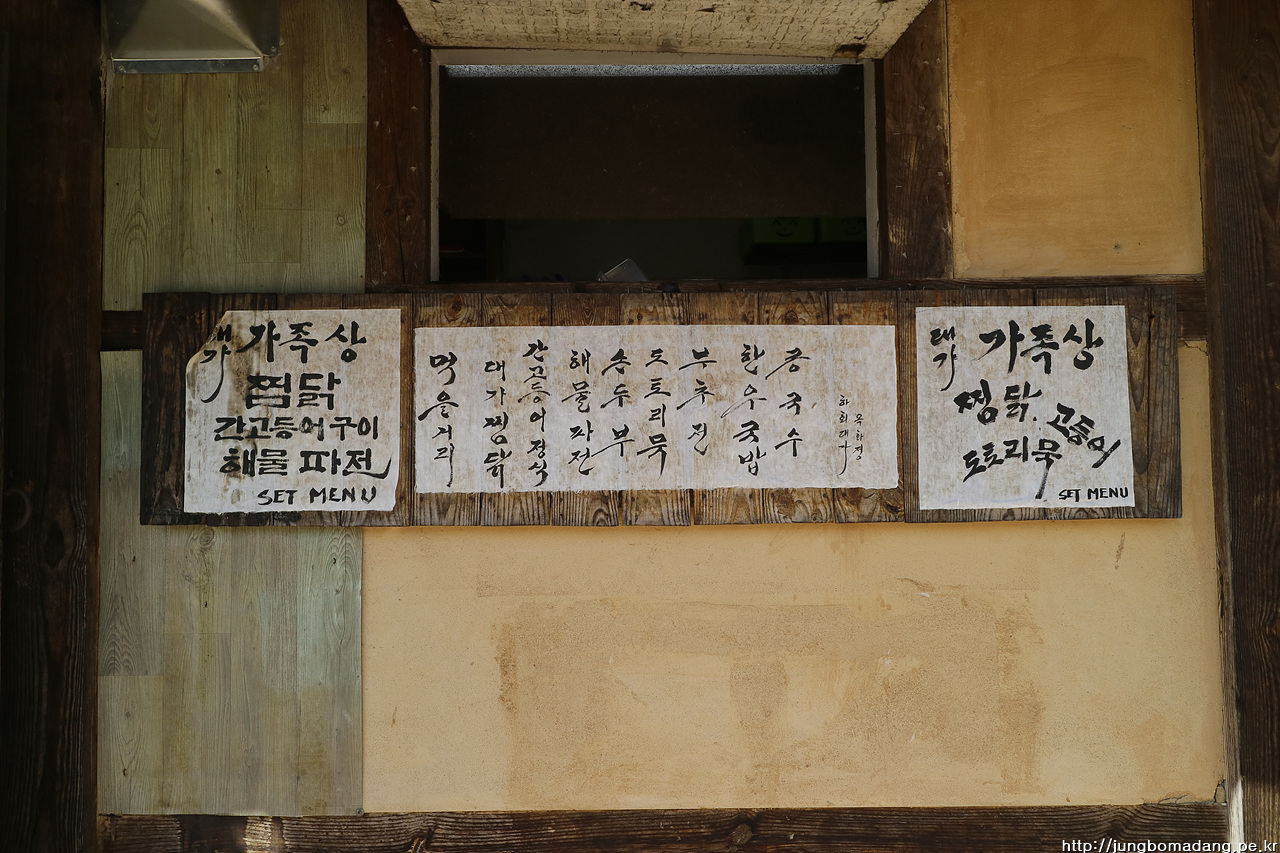 대가 가족상
찜닭
간고등어구이
해물파전
SET MENU
먹을거리
대가찜닭
간고등어정식
해물파전
손두부
도토리묵
부추전
한우국밥
콩국수
하회대가
옥화정
대가 가족상
찜닭
고등어
도토리묵
SET MENU
http://jungbomadang.pe.kr